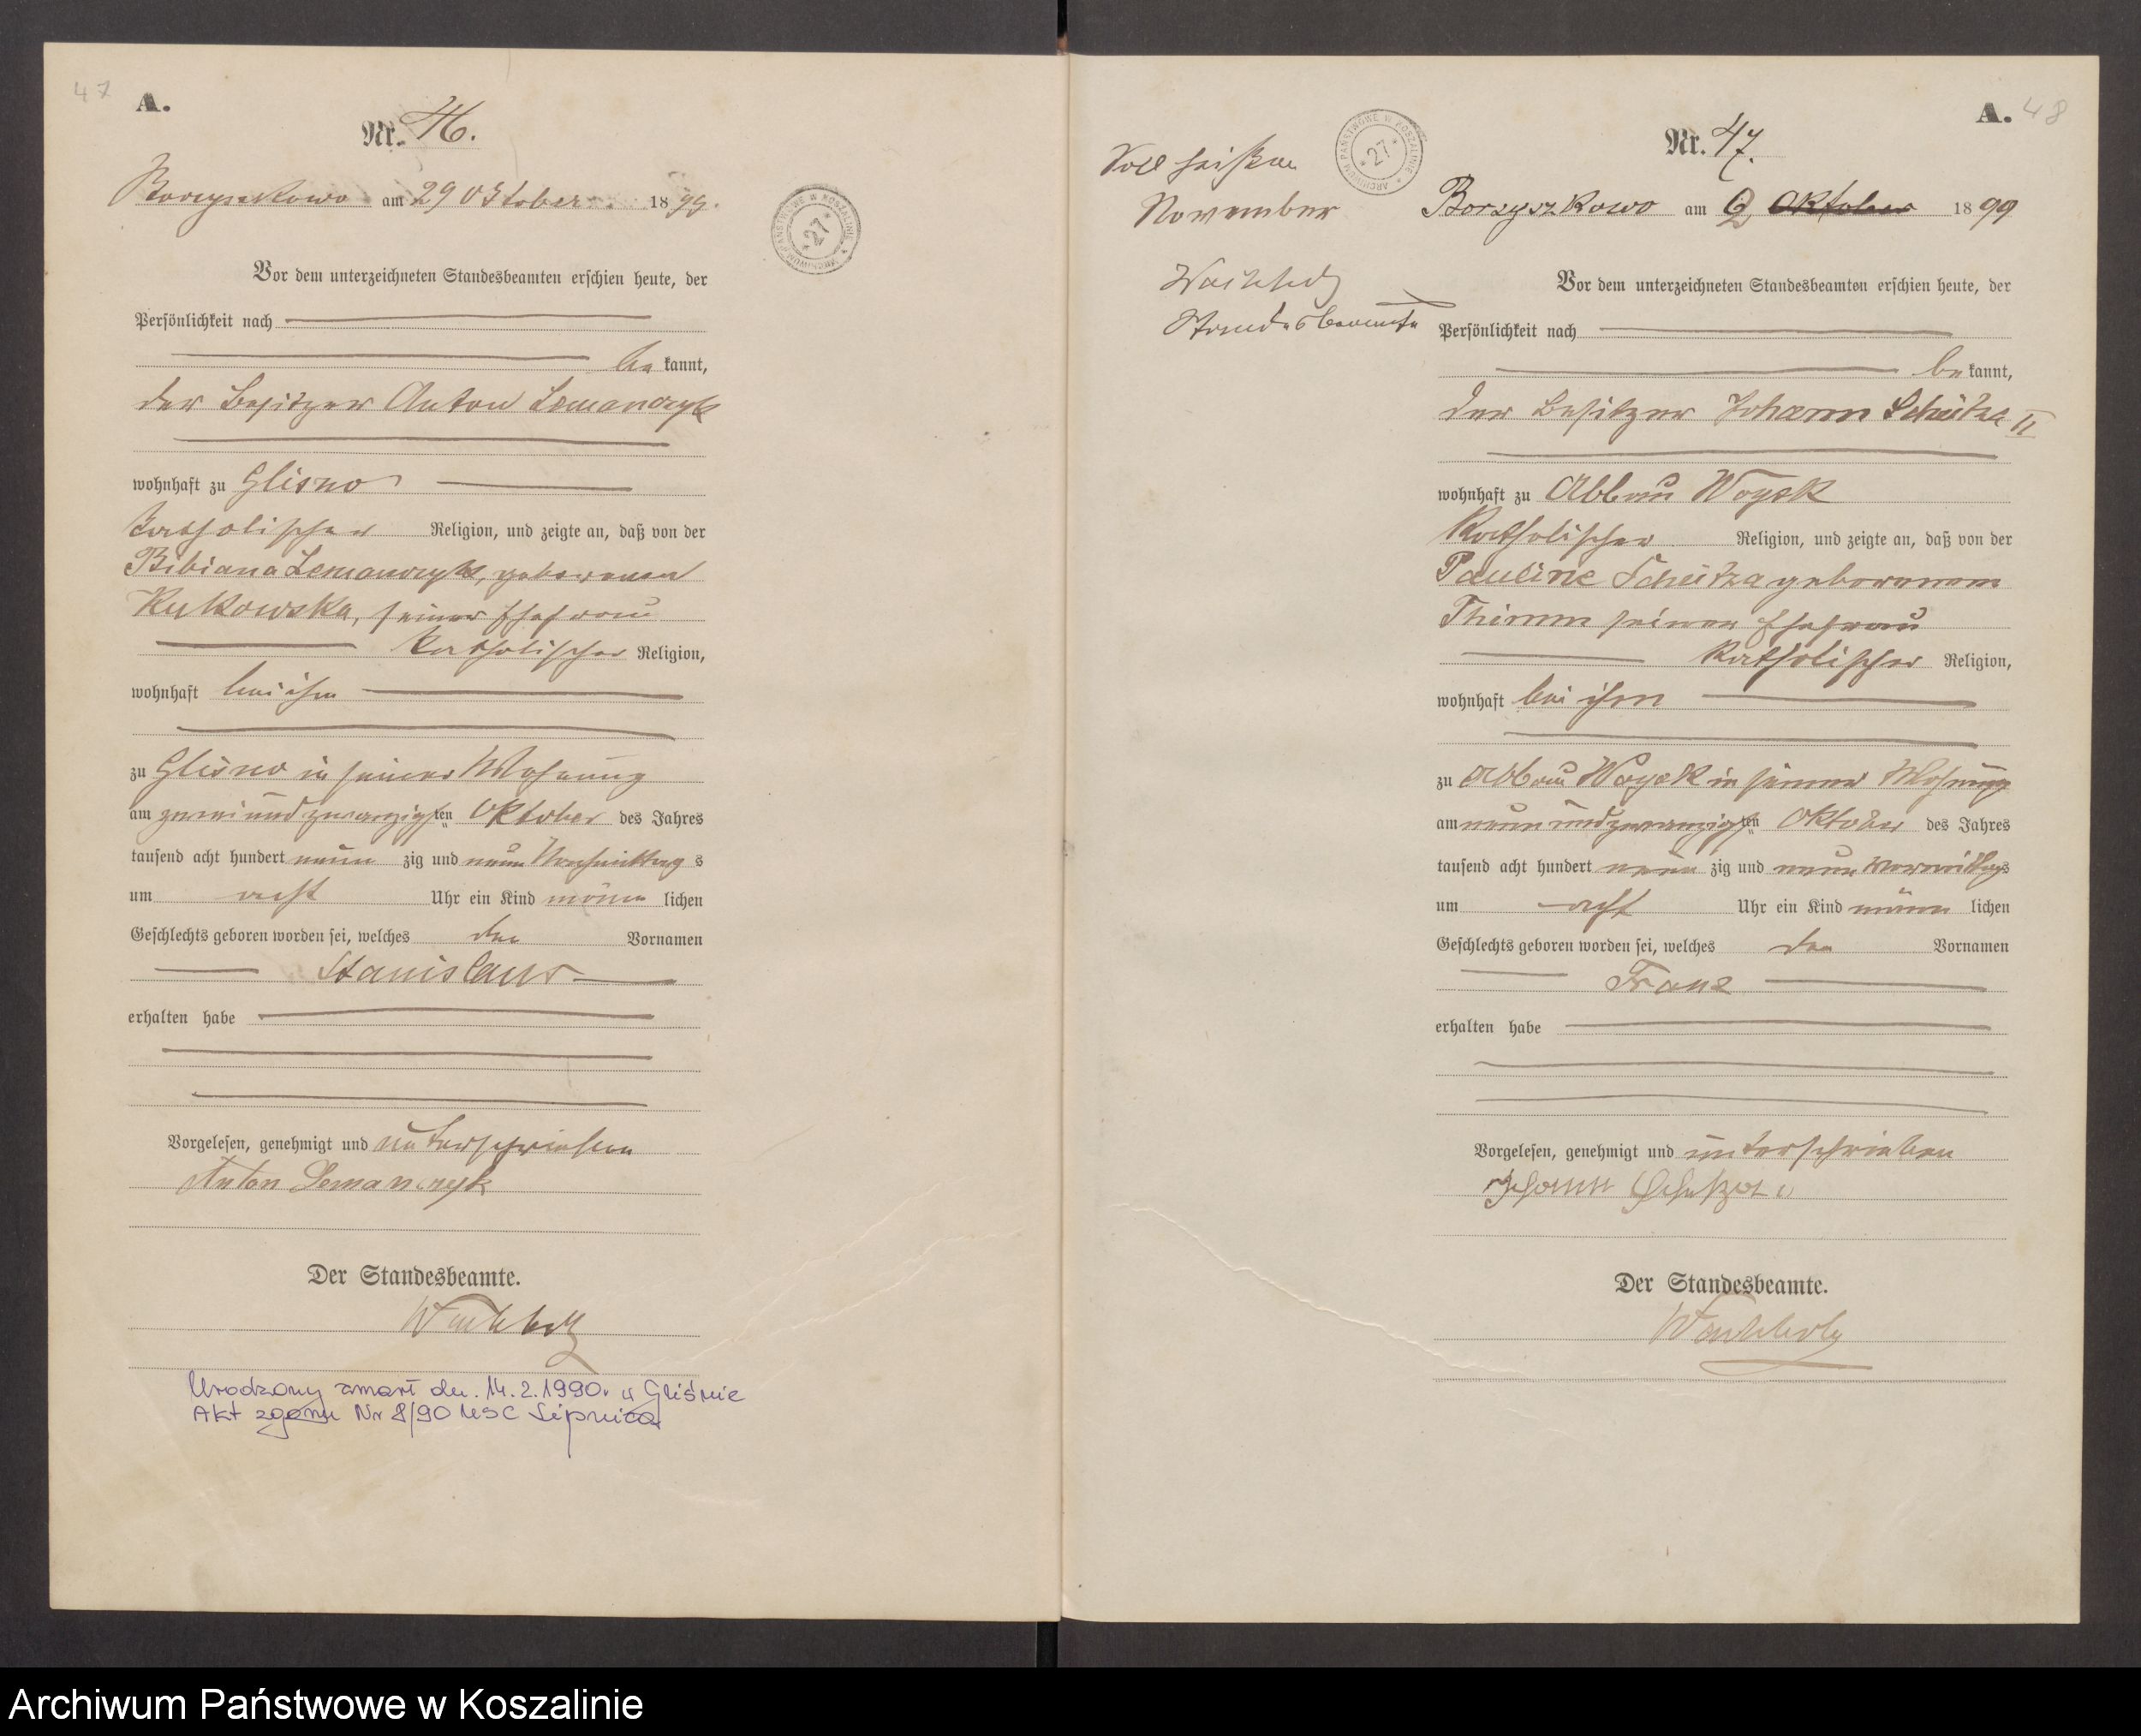 47
A.
Nr. 46.
Borzyszkowo am 29 Oktober 1899.
ARCHIWUM PAŃSTWOWE W KOSZALINIE * 27 *
Vor dem unterzeichneten Standesbeamten erschien heute, der
Persönlichkeit nach
be kannt,
der Besitzer Anton Lemanczyk
wohnhaft zu Glisno
katholischer Religion, und zeigte an, daß von der
Bibiana Lemanczyk, geborenen
Kukowska, seiner Ehefrau
katholischer Religion,
wohnhaft bei ihm
zu Glisno in seiner Wohnung
am zweiundzwanzigsten Oktober des Jahres
tausend acht hundert neun zig und neun Nachmittag s
um acht Uhr ein Kind männ lichen
Geschlechts geboren worden sei, welches den Vornamen
Stanislaus
erhalten habe
Vorgelesen, genehmigt und unterschrieben
Anton Lemanczyk
Der Standesbeamte.
Wachholz
Urodzony zmarł dn. 14.2.1990r w Gliśnie
Akt zgonu Nr 8/90 USC Lipnica
A. 48
Nr. 47.
Soll heißen
November
Wachholz
Standesbeamte
ARCHIWUM PAŃSTWOWE W KOSZALINIE * 27 *
Borzyszkowo am Oktober 1899
Vor dem unterzeichneten Standesbeamten erschien heute, der
Persönlichkeit nach
be kannt,
der Besitzer Johann Schütza II
wohnhaft zu Abbau Woysk
katholischer Religion, und zeigte an, daß von der
Pauline Schütza geborenen
Thimm seiner Ehefrau
katholischer Religion,
wohnhaft bei ihm
zu Abbau Woysk in seiner Wohnung
am neunundzwanzigsten Oktober des Jahres
tausend acht hundert neun zig und neun Vormittags
um acht Uhr ein Kind männ lichen
Geschlechts geboren worden sei, welches den Vornamen
Franz
erhalten habe
Vorgelesen, genehmigt und unterschrieben
Johann
Der Standesbeamte.
Wachholz
Archiwum Państwowe w Koszalinie